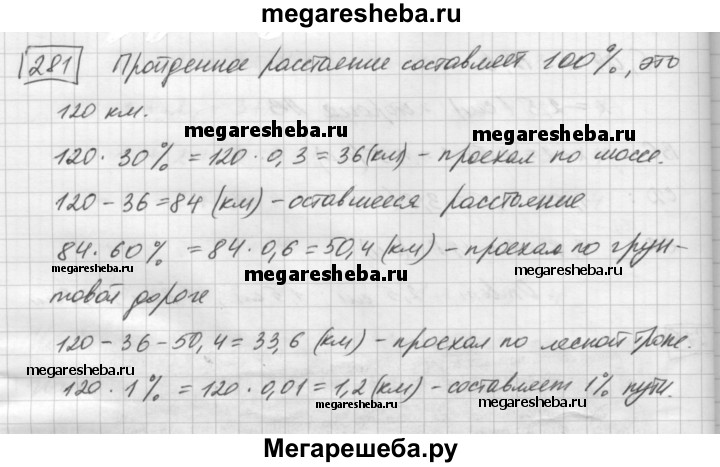 megaresheba.ru
281 Пройденное расстояние составляет 100%, это
120 км.
megaresheba.ru megaresheba.ru
120 · 30% = 120 · 0,3 = 36 (км) – проехал по шоссе.
120 – 36 = 84 (км) – оставшееся расстояние
84 · 60% = 84 · 0,6 = 50,4 (км) – проехал по грун-
megaresheba.ru megaresheba.ru megaresheba.ru
товой дороге
120 – 36 – 50,4 = 33,6 (км) – проехал по лесной тропе.
megaresheba.ru
120 · 1% = 120 · 0,01 = 1,2 (км) – составляет 1% пути.
megaresheba.ru megaresheba.ru
Мегарешеба.ру